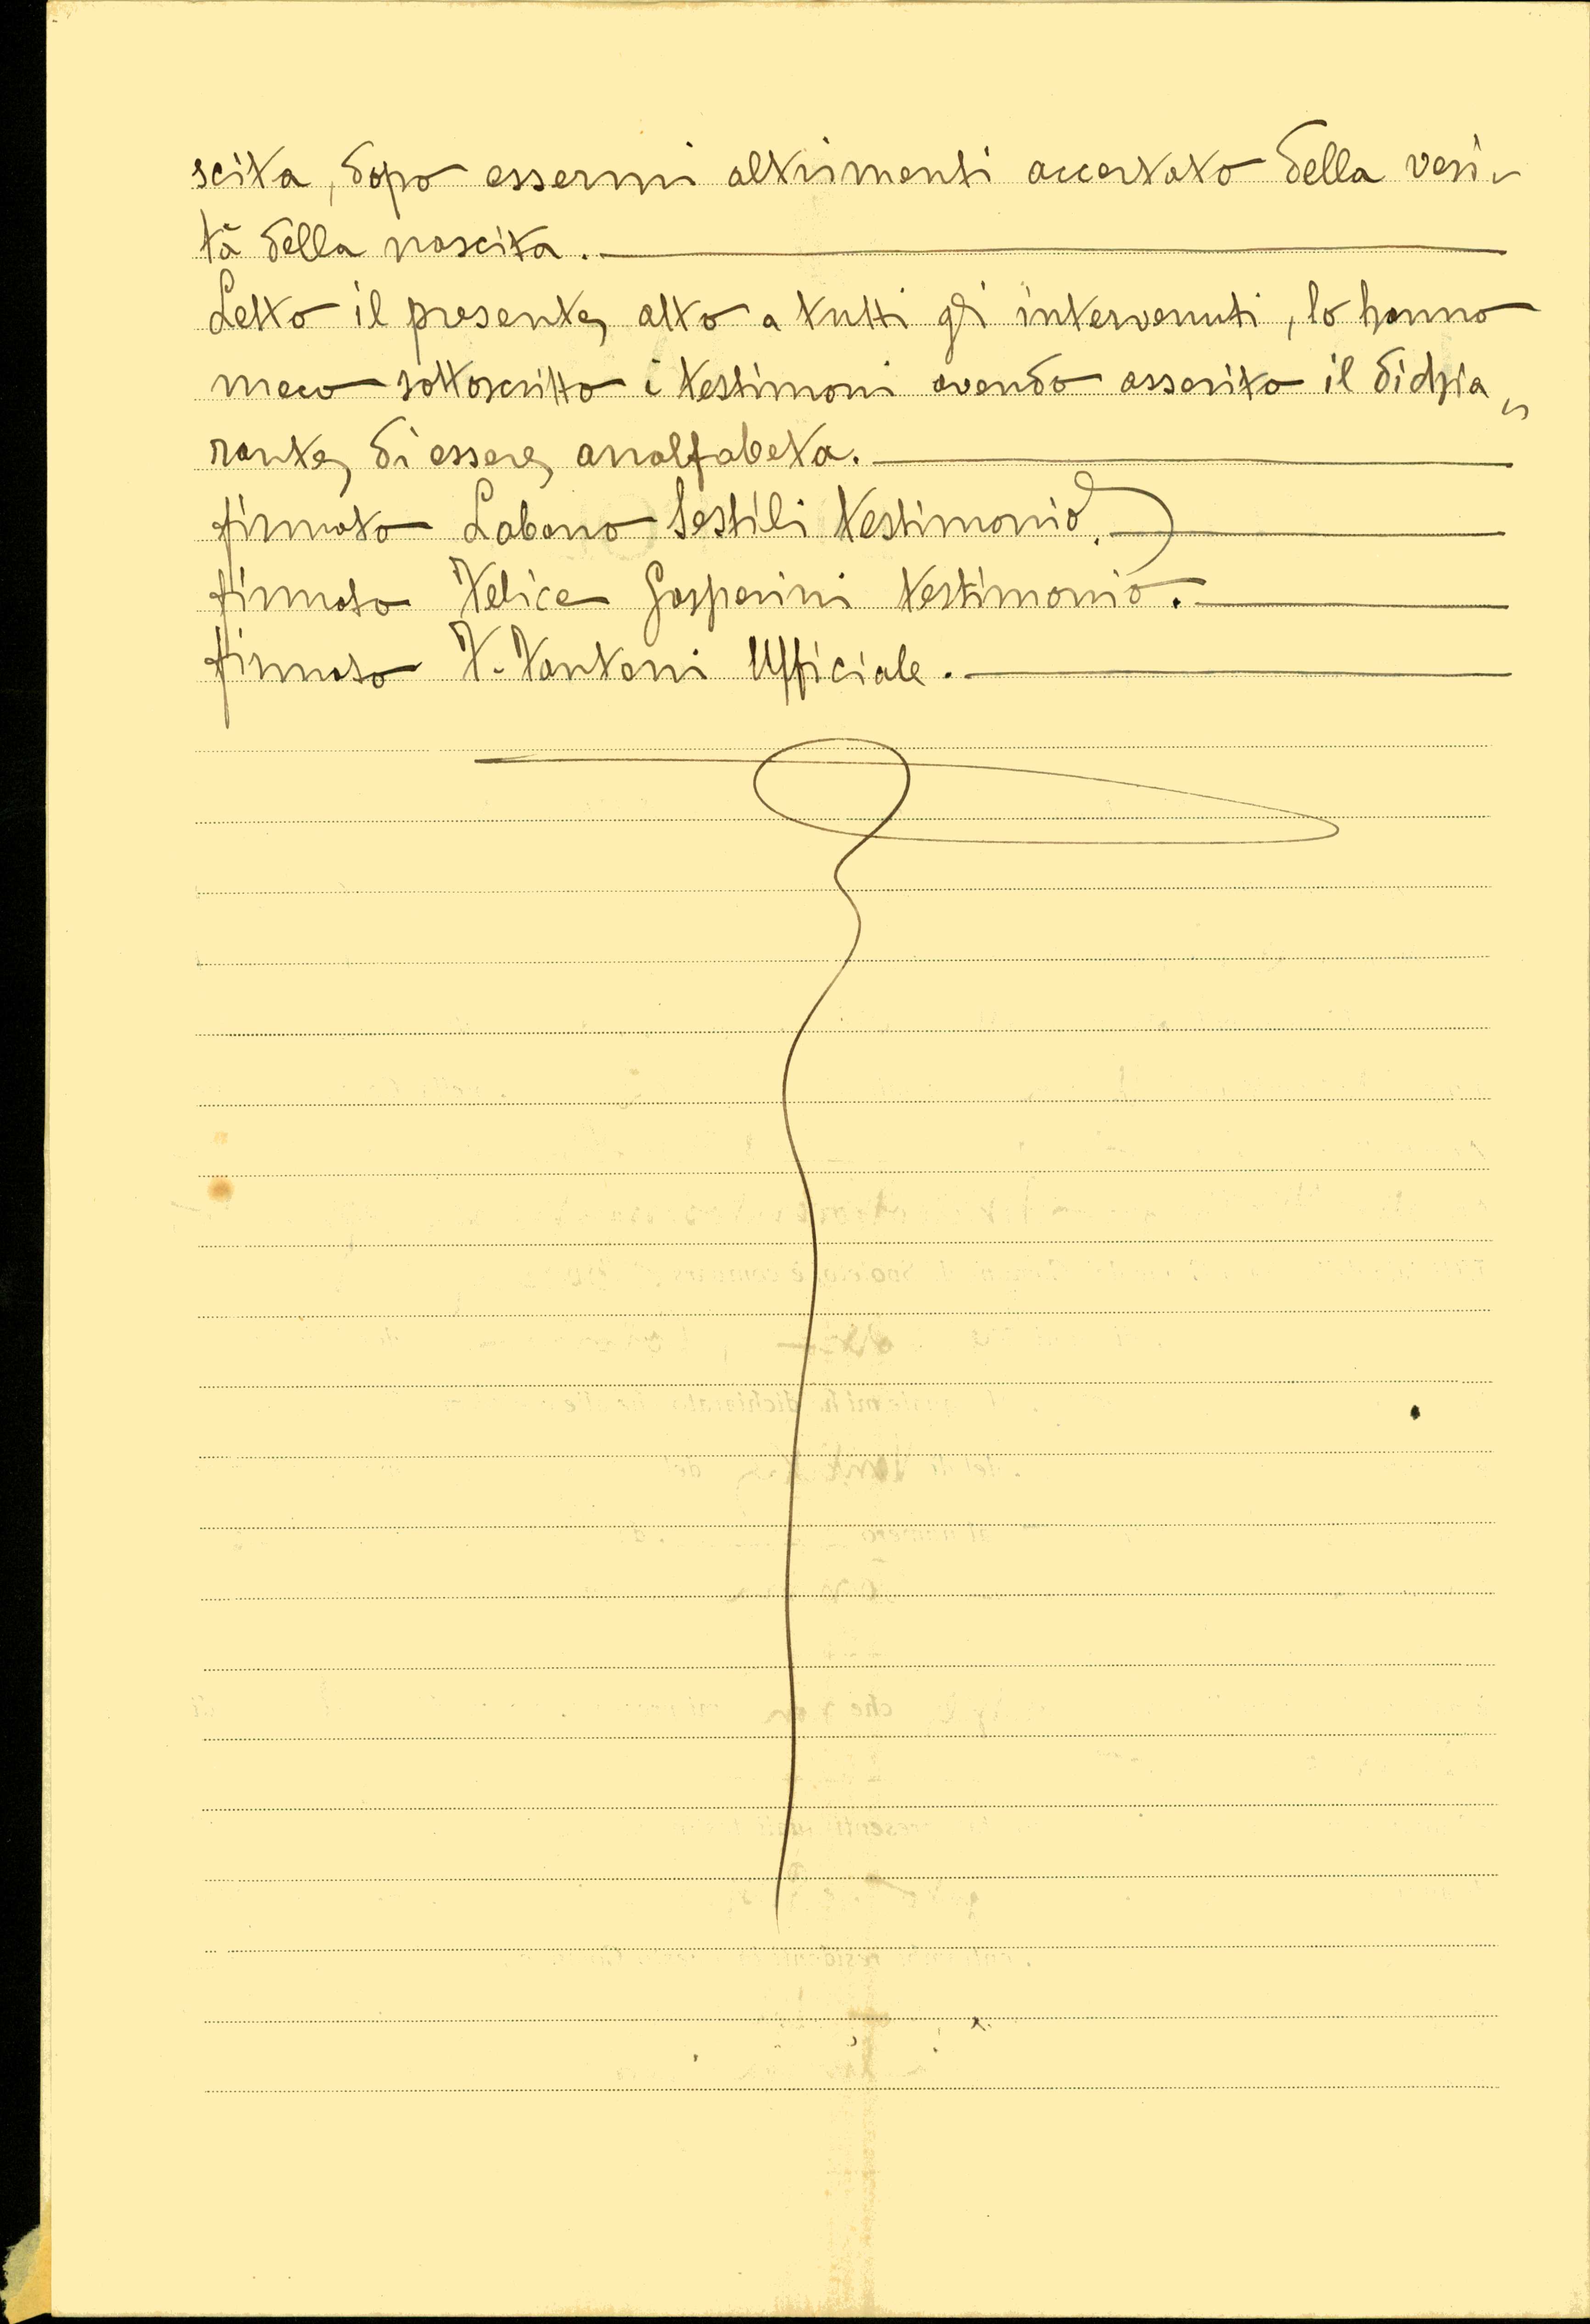 scita, dopo essermi altrimenti accertato della veri-
tà della nascita.
Letto il presente atto a tutti gli intervenuti, lo hanno
meco sottoscritto i testimoni avendo asserito il dichia-
rante di essere analfabeta.
firmato Labano Sestili testimonio.
firmato Felice Gasperini testimonio.
firmato F. Fantoni Ufficiale.